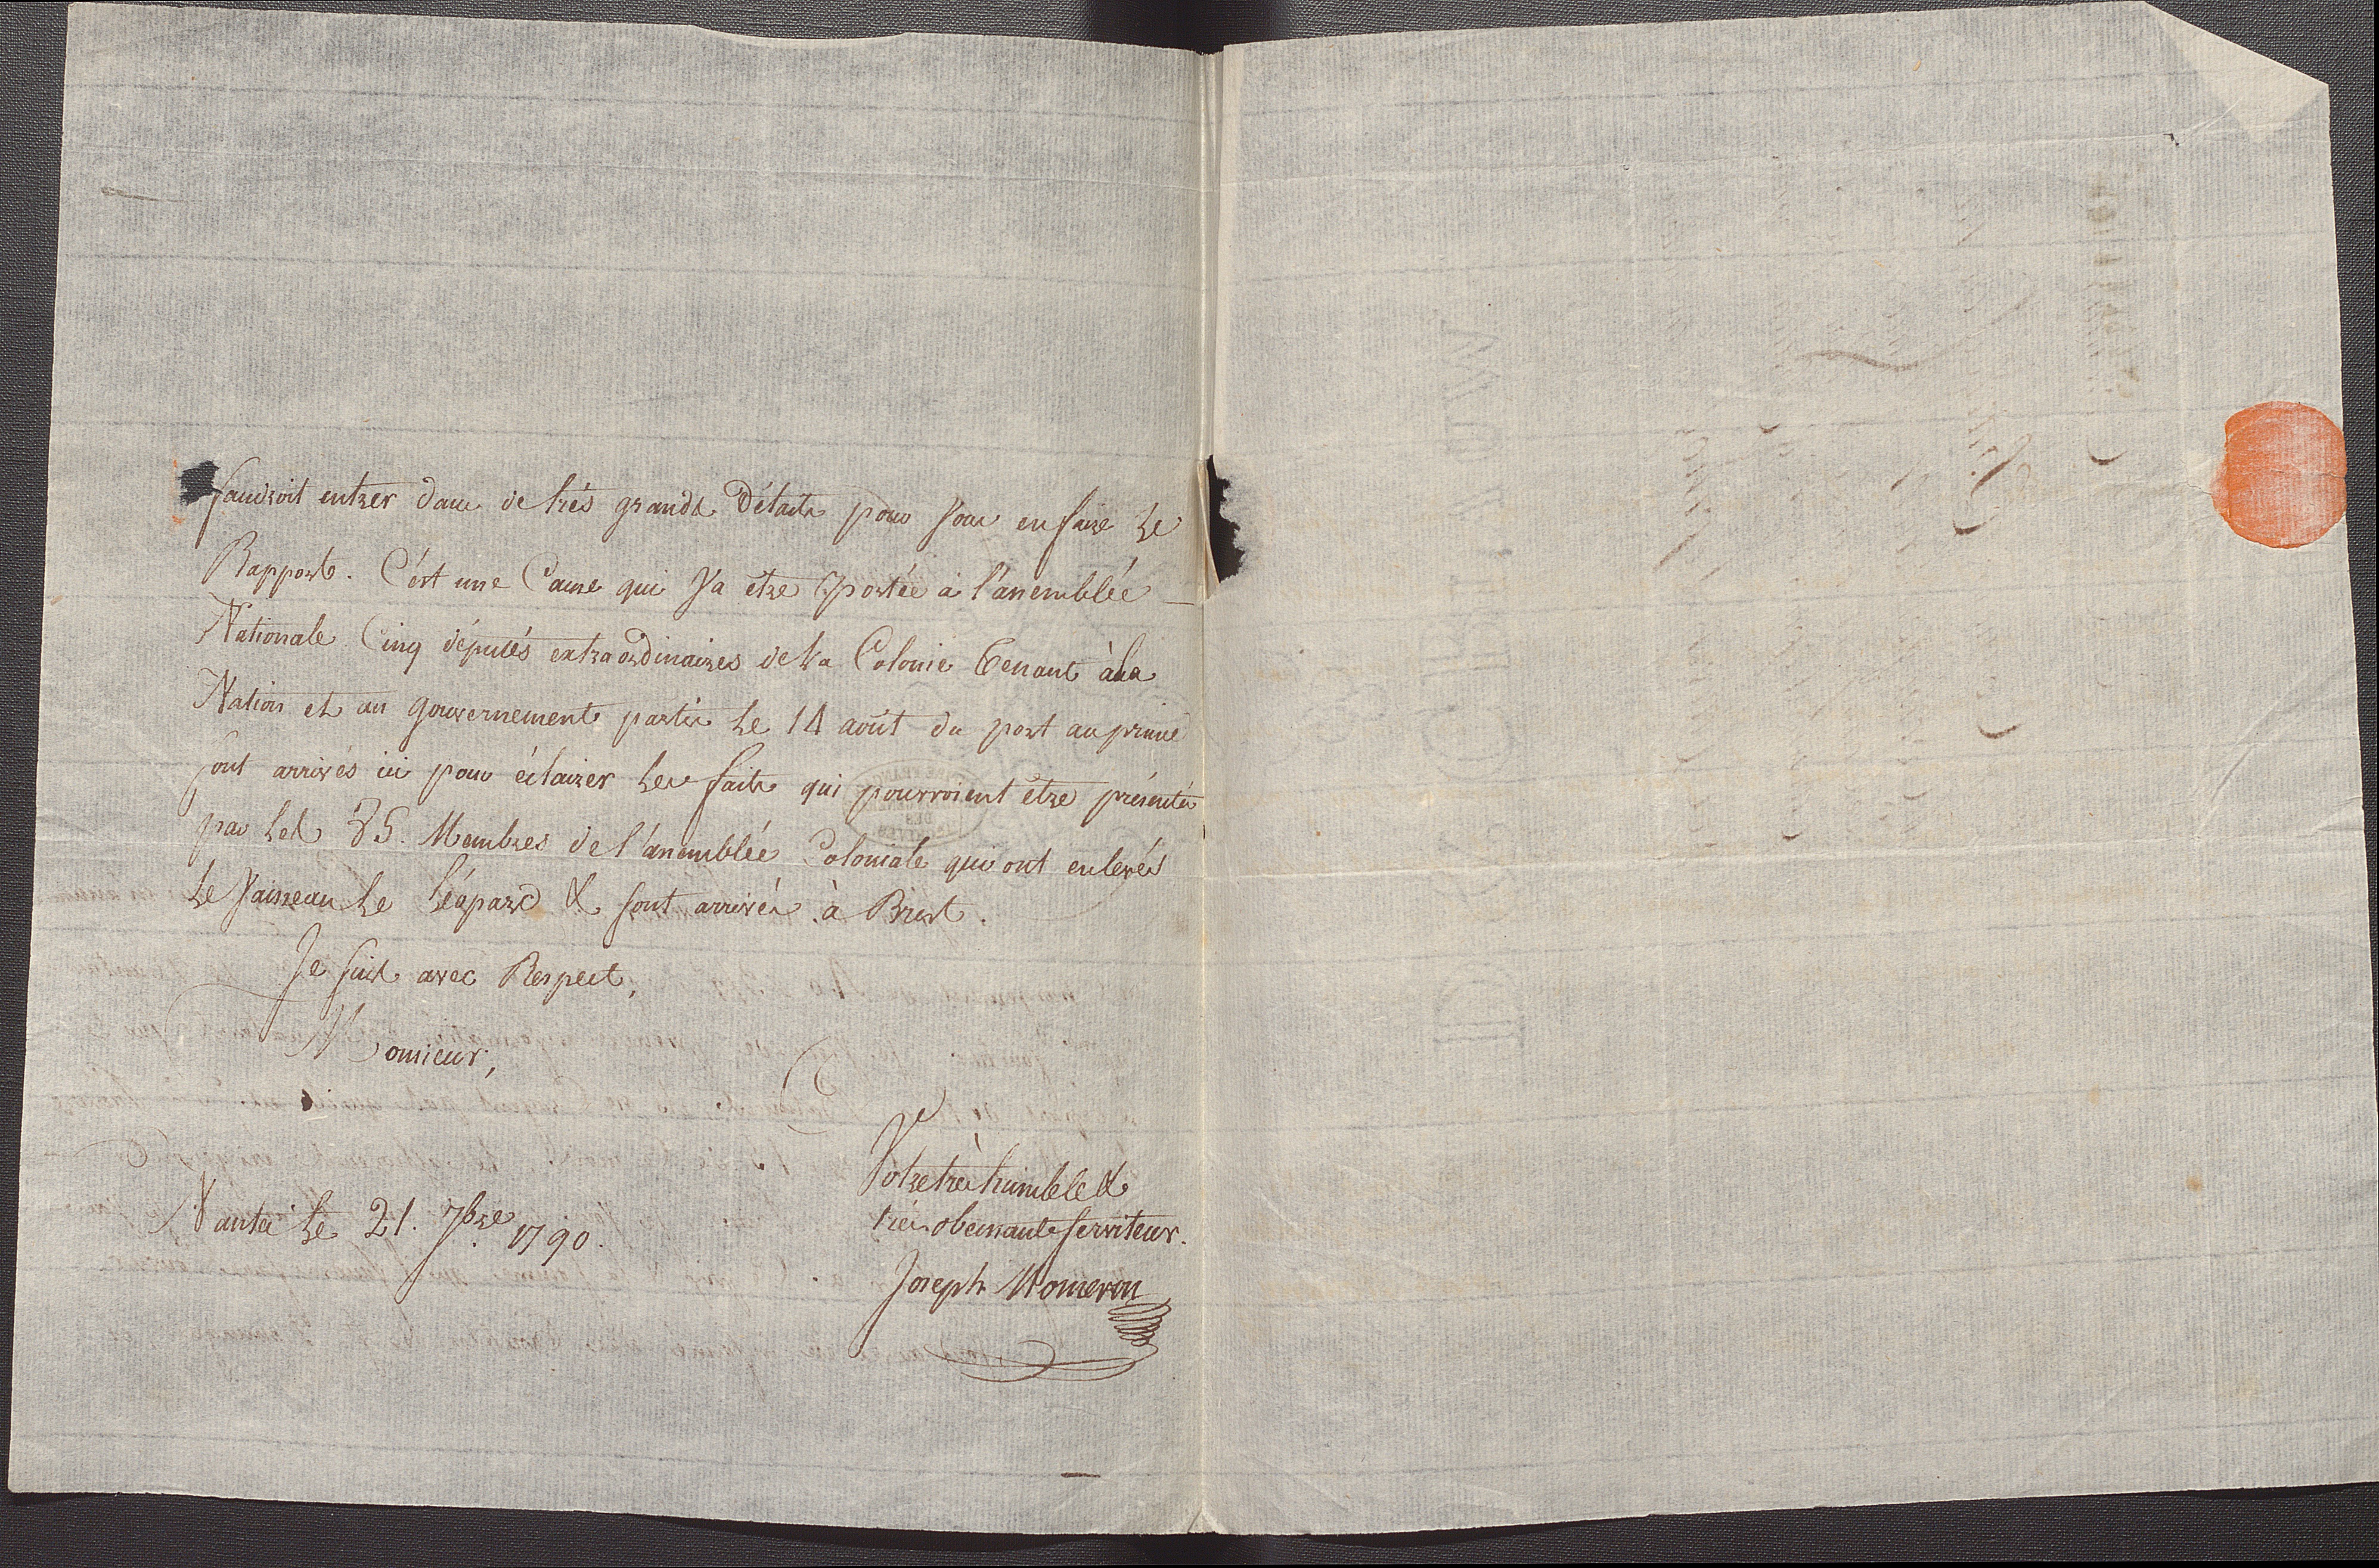 faudroit entrer dans de très grands Détails pour Vous en faire Le
Rapport. C'est une Cause qui Va etre portée à l'assemblée
Nationale Cinq députés extraordinaires de La Colonie tenant à La
Nation et au gouvernement partis Le 14 août du port au prince
sont arrivés ici pour éclairer Les faits qui pourroient être présentés
par Les 85. Membres de l'assemblée Coloniale qui ont enlevés
Le Vaisseau Le Léopard & sont arrivés à Brest.
Je suis avec Respect,
Monsieur,
Votre très humble &
très obeissant serviteur.
Joseph
Nantes Le 21. 7bre 1790.